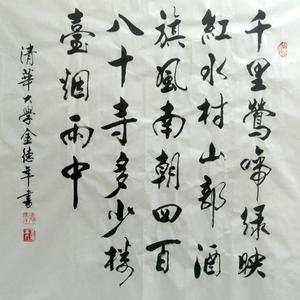 千里鶯啼绿映
紅水村山郭酒
旗風南朝四百
八十寺多少楼
臺烟雨中
清華大學金德年書